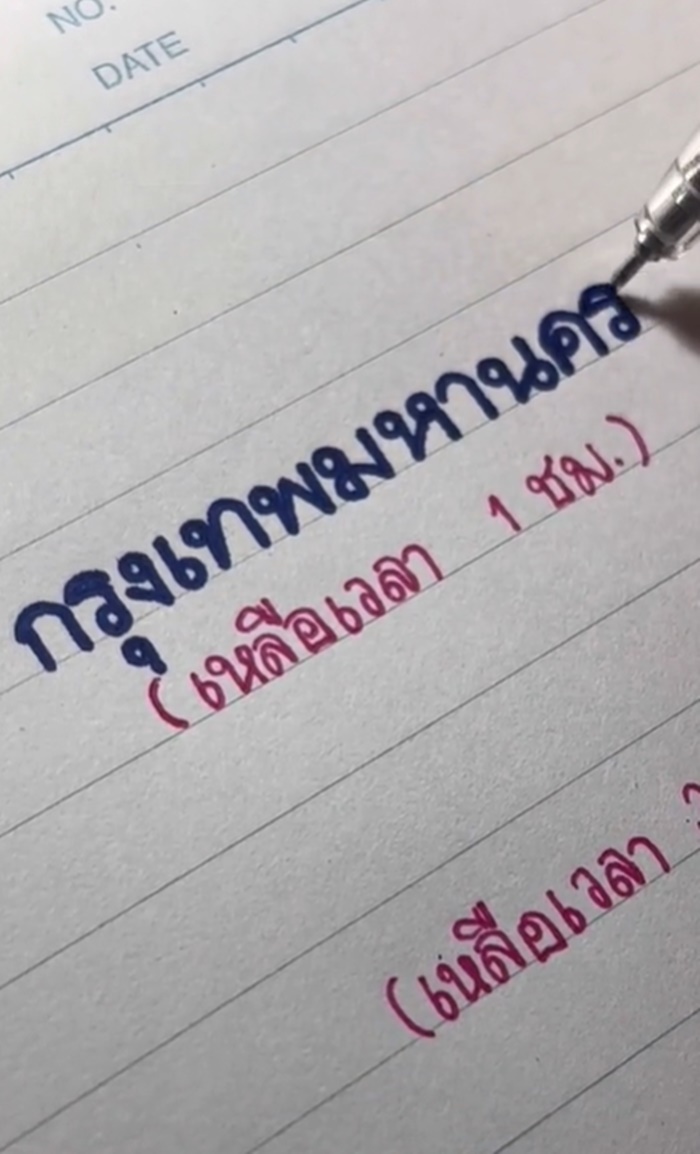 NO.
DATE
กรุงเทพมหานคร
(เหลือเวลา 1 ชม.)
(เหลือเวลา